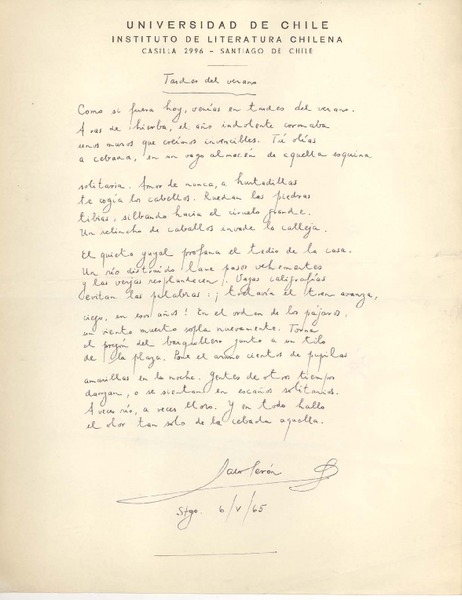 UNIVERSIDAD DE CHILE
INSTITUTO DE LITERATURA CHILENA
CASILLA 2996 - SANTIAGO DE CHILE
Tardes del verano
Como si fuera hoy, venías en tardes del verano.
A ras de hierba, el año indolente coronaba
unos muros que creímos invencibles. Tú olías
a cebada, en un vago almacén de aquella esquina
solitaria. Amor de nunca, a hurtadillas
te cogía los cabellos. Ruedan las piedras
tibias, silbando hacia el ciruelo grande.
Un relincho de caballos invade la calleja.
El quieto yuyal profana el tedio de la casa.
Un río distraído llave pasos vehementes
y las verjas resplandecen. Vagas caligrafías
evitan las palabras: ¡todavía el tren avanza,
ciego, en esos años! En el orden de los pájaros,
un viento muerto sopla nuevamente. Torna
el pregón del barquillero junto a un tilo
de la plaza. Pone el aromo cientos de pupilas
amarillas en la noche. Gentes de otros tiempos
danzan, o se sientan en escaños solitarios.
A veces río, a veces lloro. Y en todo hallo
el olor tan solo de la cebada aquella.
Stgo. 6/V/65